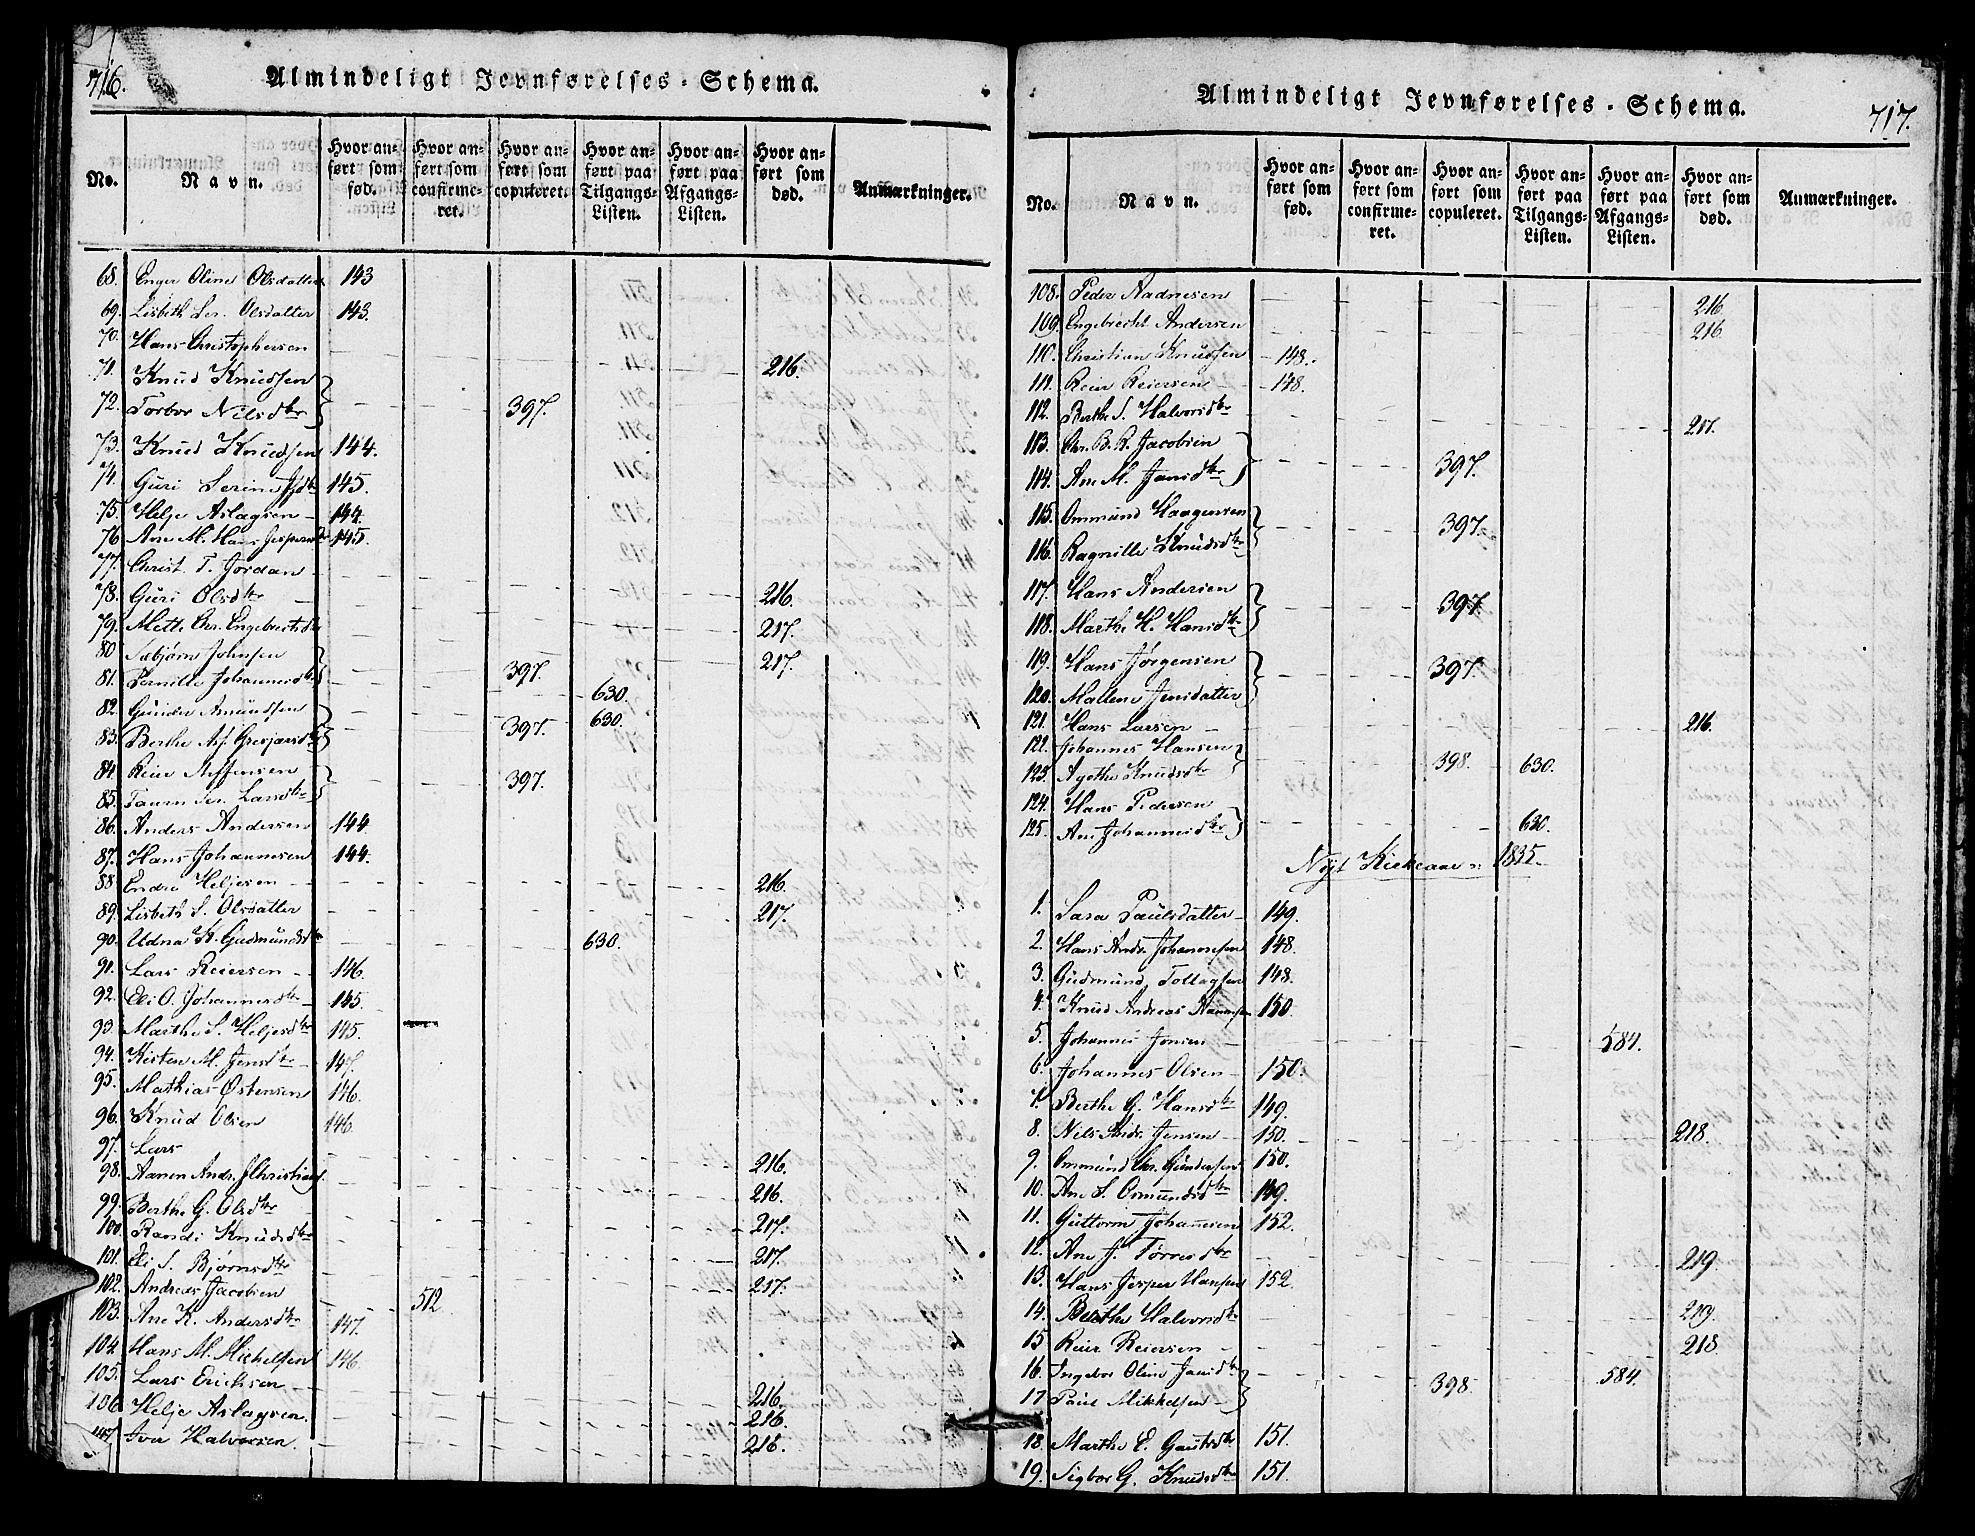 716.
Almindeligt Jevnførelses-Schema.
No. Navn. Hvor anført som fød. Hvor anført som confirmeret. Hvor anført som copuleret. Hvor anført paa Tilgangs-Listen. Hvor anført paa Afgangs-Listen. Hvor anført som død. Anmærkninger.
68. Enger Oline Olsdatter 143
69. Lisbeth Ser. Olsdatter 143.
70. Hans Christophersen
71. Knud Knudsen 216.
72. Torbor Nilsdtr 397.
73. Knud Knudsen 144.
74. Guri Serine 145.
75. Helje Aslagsen 144.
76 Ane M. Hans Jespersdtr 145.
77. Christ. T. Jordan
78. Guri Olsdtr 216.
79. Mette Chr. Engebretsdtr 217.
80 Johnsen 217.
81. Pernille Johannesdtr 397. 630.
82. Gunder Amundsen 630.
83. Berthe As. Gresjarsdtr 397.
84. Reier Steffensen
85. Taurn Ser. Larsdtr 397.
86. Anders Andersen 144.
87. Hans Johannesen 144.
88 Endre Heljesen 216.
89. Lisbeth S. Olsdatter 217.
90. Udna K. Gudmundsdtr 630.
91. Lars Reiersen 146.
92. Eli O. Johannesdtr 145.
93 Marthe S. Heljesdtr 145.
94. Kisten M. Jensdtr 147.
95. Mathias Østensen 146.
96. Knud Olsen 146.
97. Lars
98. Aanen Andr. Christians. 216.
99. Berthe G. Olsdtr 216.
100 Randi Knudsdtr 217.
101. Eli S. Bjørnsdtr 217.
102. Andreas Jacobsen 512 217.
103. Ane K. Andersdtr 147.
104 Hans M. Michelsen 146.
105. Lars Erichsen 216.
106 Helje Aslagsen. 216.
107 Iver Halvorsen. 216.
Almindeligt Jevnførelses-Schema.
717.
No. Navn. Hvor anført som fød. Hvor anført som confirmeret. Hvor anført som copuleret. Hvor anført paa Tilgangs-Listen. Hvor anført paa Afgangs-Listen. Hvor anført som død. Anmærkninger.
108. Peder Aadnesen 216
109. Engebrecht Andersen 216.
110. Christian Knudsen 148.
111. Reier Reiersen 148.
112. Berthe S. Halvorsdtr 217.
113. Chr. B. R. Jacobsen
114. Ane M. Jansdtr 397.
115. Ommund Haagensen
116. Ragnille Knudsdtr 397.
117. Hans Andersen
118. Marthe H. Hansdtr 397.
119. Hans Jørgensen
120. Mallene Jensdatter 397.
121. Hans Larsen 216.
122. Johannes Hansen
123. Agethe Knudsdtr 398. 630.
124. Hans Pedersen
125. Ane Johannesdtr 630.
Nyt Kirkeaar 1835.
1. Sara Paulsdatter 149.
2. Hans Andr. Johannesen 148.
3. Gudmund Tollagsen 148.
4. Knud Andreas 150.
5. Johannes Jonsen 584.
6. Johannes Olsen 150.
7. Berthe G. Hansdtr 149.
8. Nils Andr. Jensen 150. 218.
9. Ommund Chr. Gundersen 150.
10. Ane S. Omundsdtr 149.
11. Guttorm Johannesen 152.
12. Ane J. Tørresdtr 219.
13. Hans Jesper Hansen 152.
14. Berthe Halvorsdtr 219.
15 Reier Reiersen 218
16. Ingebor Oline Jansdtr
17 Paul Mikkelsen 398. 584.
18. Marthe E. Gautesdtr 151.
19. Sigbor G. Knudsdtr 151.